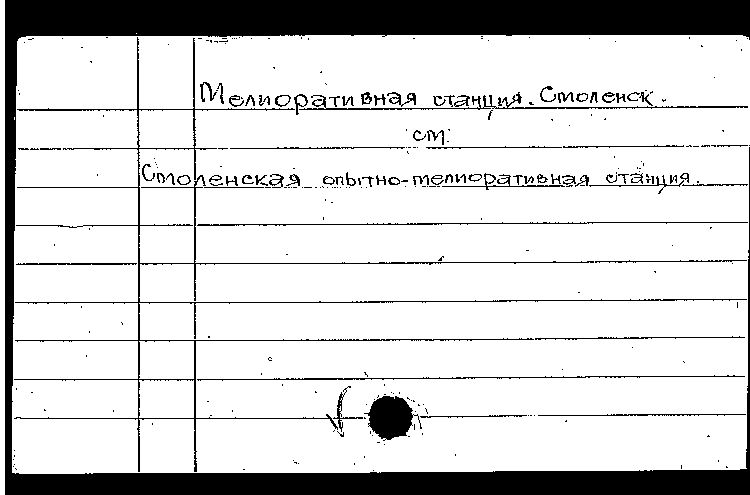 Мелиоративная станция. Смоленск.
см.
Смоленская опытно-мелиоративная станция.